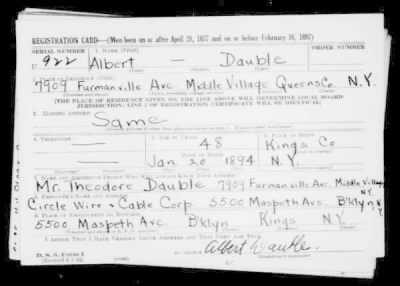 REGISTRATION CARD—(Men born on or after April 28, 1877 and on or before February 16, 1897)
SERIAL NUMBER 1. NAME (Print) ORDER NUMBER
U 922 Albert — Dauble
2. PLACE OF RESIDENCE (Print)
7909 Furmanville Ave. Middle Village Queens Co. N.Y.
[THE PLACE OF RESIDENCE GIVEN ON THE LINE ABOVE WILL DETERMINE LOCAL BOARD
JURISDICTION; LINE 2 OF REGISTRATION CERTIFICATE WILL BE IDENTICAL]
3. MAILING ADDRESS
Same
4. TELEPHONE 5. AGE IN YEARS 6. PLACE OF BIRTH
— 48 Kings Co.
DATE OF BIRTH
— Jan 20 1894 N.Y.
7. NAME AND ADDRESS OF PERSON WHO WILL ALWAYS KNOW YOUR ADDRESS
Mr. Theodore Dauble 7909 Furmanville Ave. Middle Village N.Y.
8. EMPLOYER'S NAME AND ADDRESS
Circle Wire + Cable Corp. 5500 Maspeth Ave. B'klyn N.Y.
9. PLACE OF EMPLOYMENT OR BUSINESS
5500 Maspeth Ave. B'klyn Kings N.Y.
I AFFIRM THAT I HAVE VERIFIED ABOVE ANSWERS AND THAT THEY ARE TRUE.
D. S. S. Form 1
Albert Dauble.